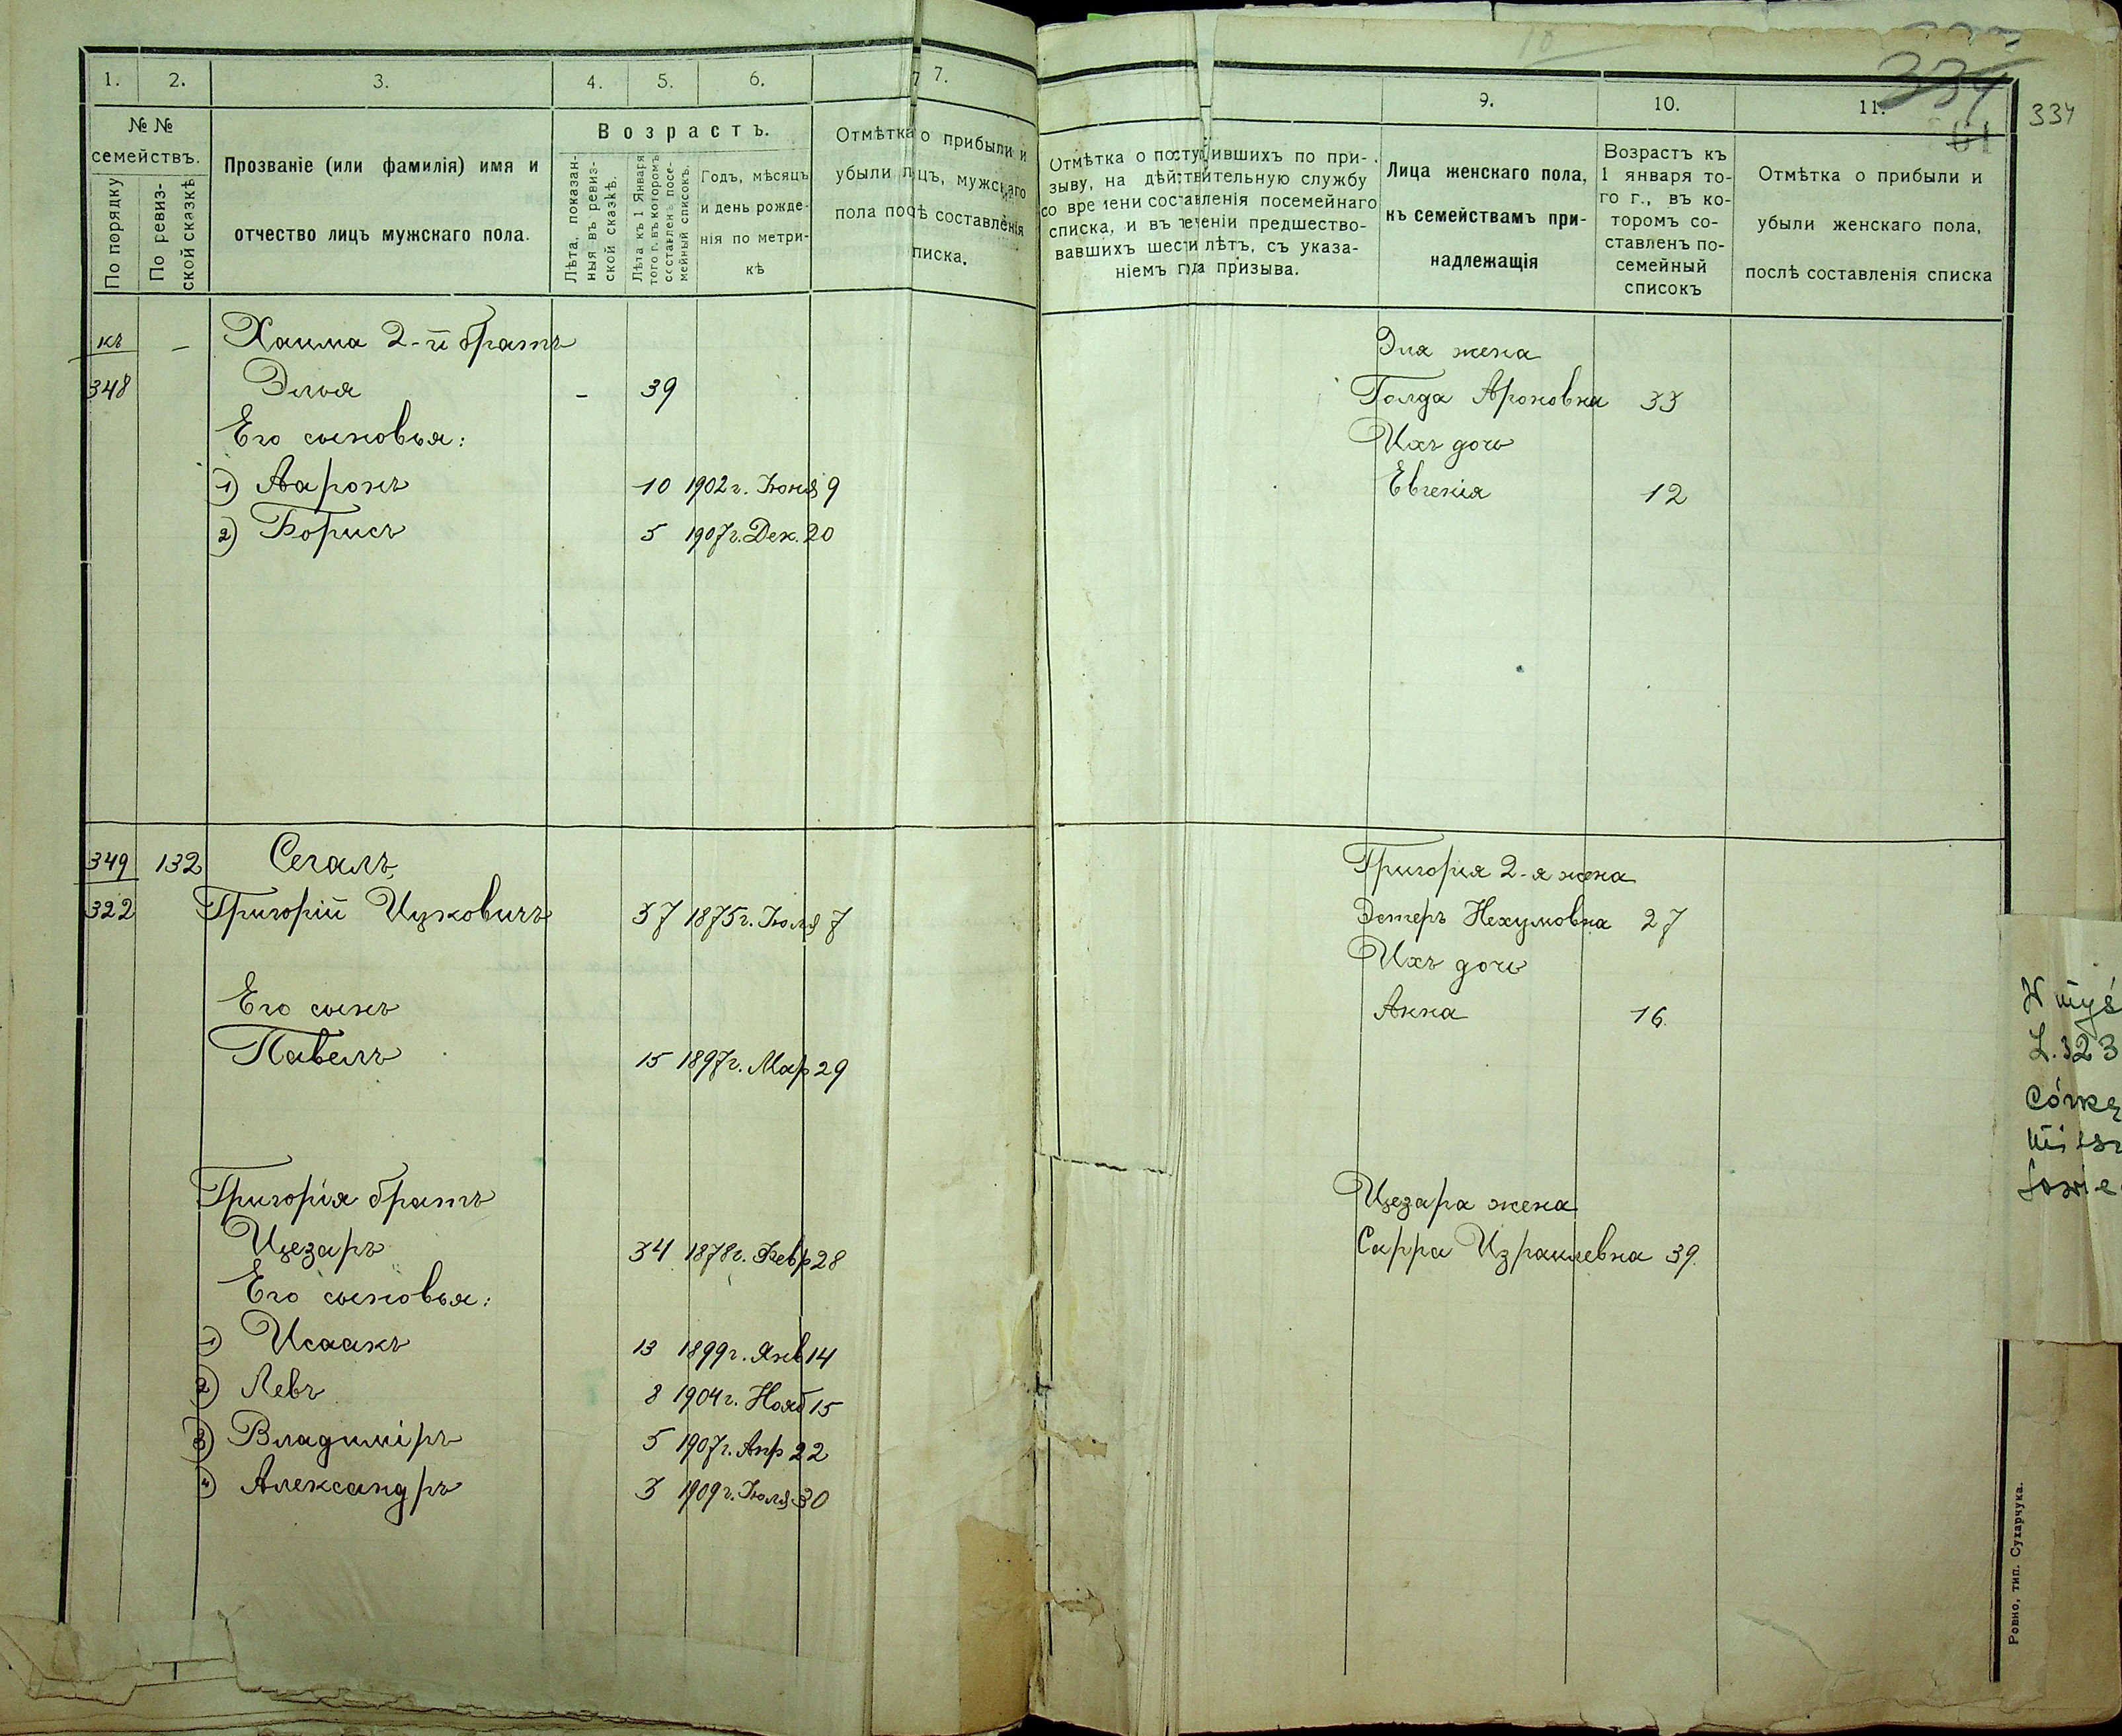 1. 2. 3. 4. 5. 6. 7.
№ №
семействъ.
По порядку
По ревиз-
ской сказкѣ
Прозваніе (или фамилія) имя и
отчество лицъ мужскаго пола.
Возрастъ.
Лѣта, показан-
ныя въ ревиз-
ской сказкѣ.
Лѣта къ 1 Января
того г. въ которомъ
составленъ посе-
мейный списокъ.
Годъ, мѣсяцъ
и день рожде-
нія по метри-
кѣ
Отмѣтка о прибыли и
убыли лицъ, мужскаго
пола послѣ составленія
списка.
къ — Хаима 2-й братъ
348 Элья — 39
Его сыновья:
1) Ааронъ 10 1902 г. Іюня 9
2) Борисъ 5 1907 г. Дек. 20
349 132 Сегалъ,
322 Григорій Ицковичъ 37 1875 г. Іюля 7
Его сынъ
Павелъ 15 1897 г. Мар 29
Григорія братъ
Цезаръ 34 1878 г. Февр 28
Его сыновья:
1) Исаакъ 13 1899 г. Янв 14
2) Левъ 8 1904 г. Нояб 15
3) Владиміръ 5 1907 г. Апр 22
4) Александръ 3 1909 г. Іюля 30
9. 10. 11.
334
334
Отмѣтка о поступившихъ по при-
зыву, на дѣйствительную службу
со времени составленія посемейнаго
списка, и въ теченіи предшество-
вавшихъ шести лѣтъ, съ указа-
ніемъ года призыва.
Лица женскаго пола,
къ семействамъ при-
надлежащія
Возрастъ къ
1 января то-
го г., въ ко-
торомъ со-
ставленъ по-
семейный
списокъ
Отмѣтка о прибыли и
убыли женскаго пола,
послѣ составленія списка
Эля жена
Голда Ароновна 33
Ихъ дочь
Евгенія 12
Григорія 2-я жена
Эстеръ Нехумовна 27
Ихъ дочь
Анна 16
Цезара жена
Сарра Израилевна 39.
L. 323
Córkę
Ровно, тип. Сухарчука.